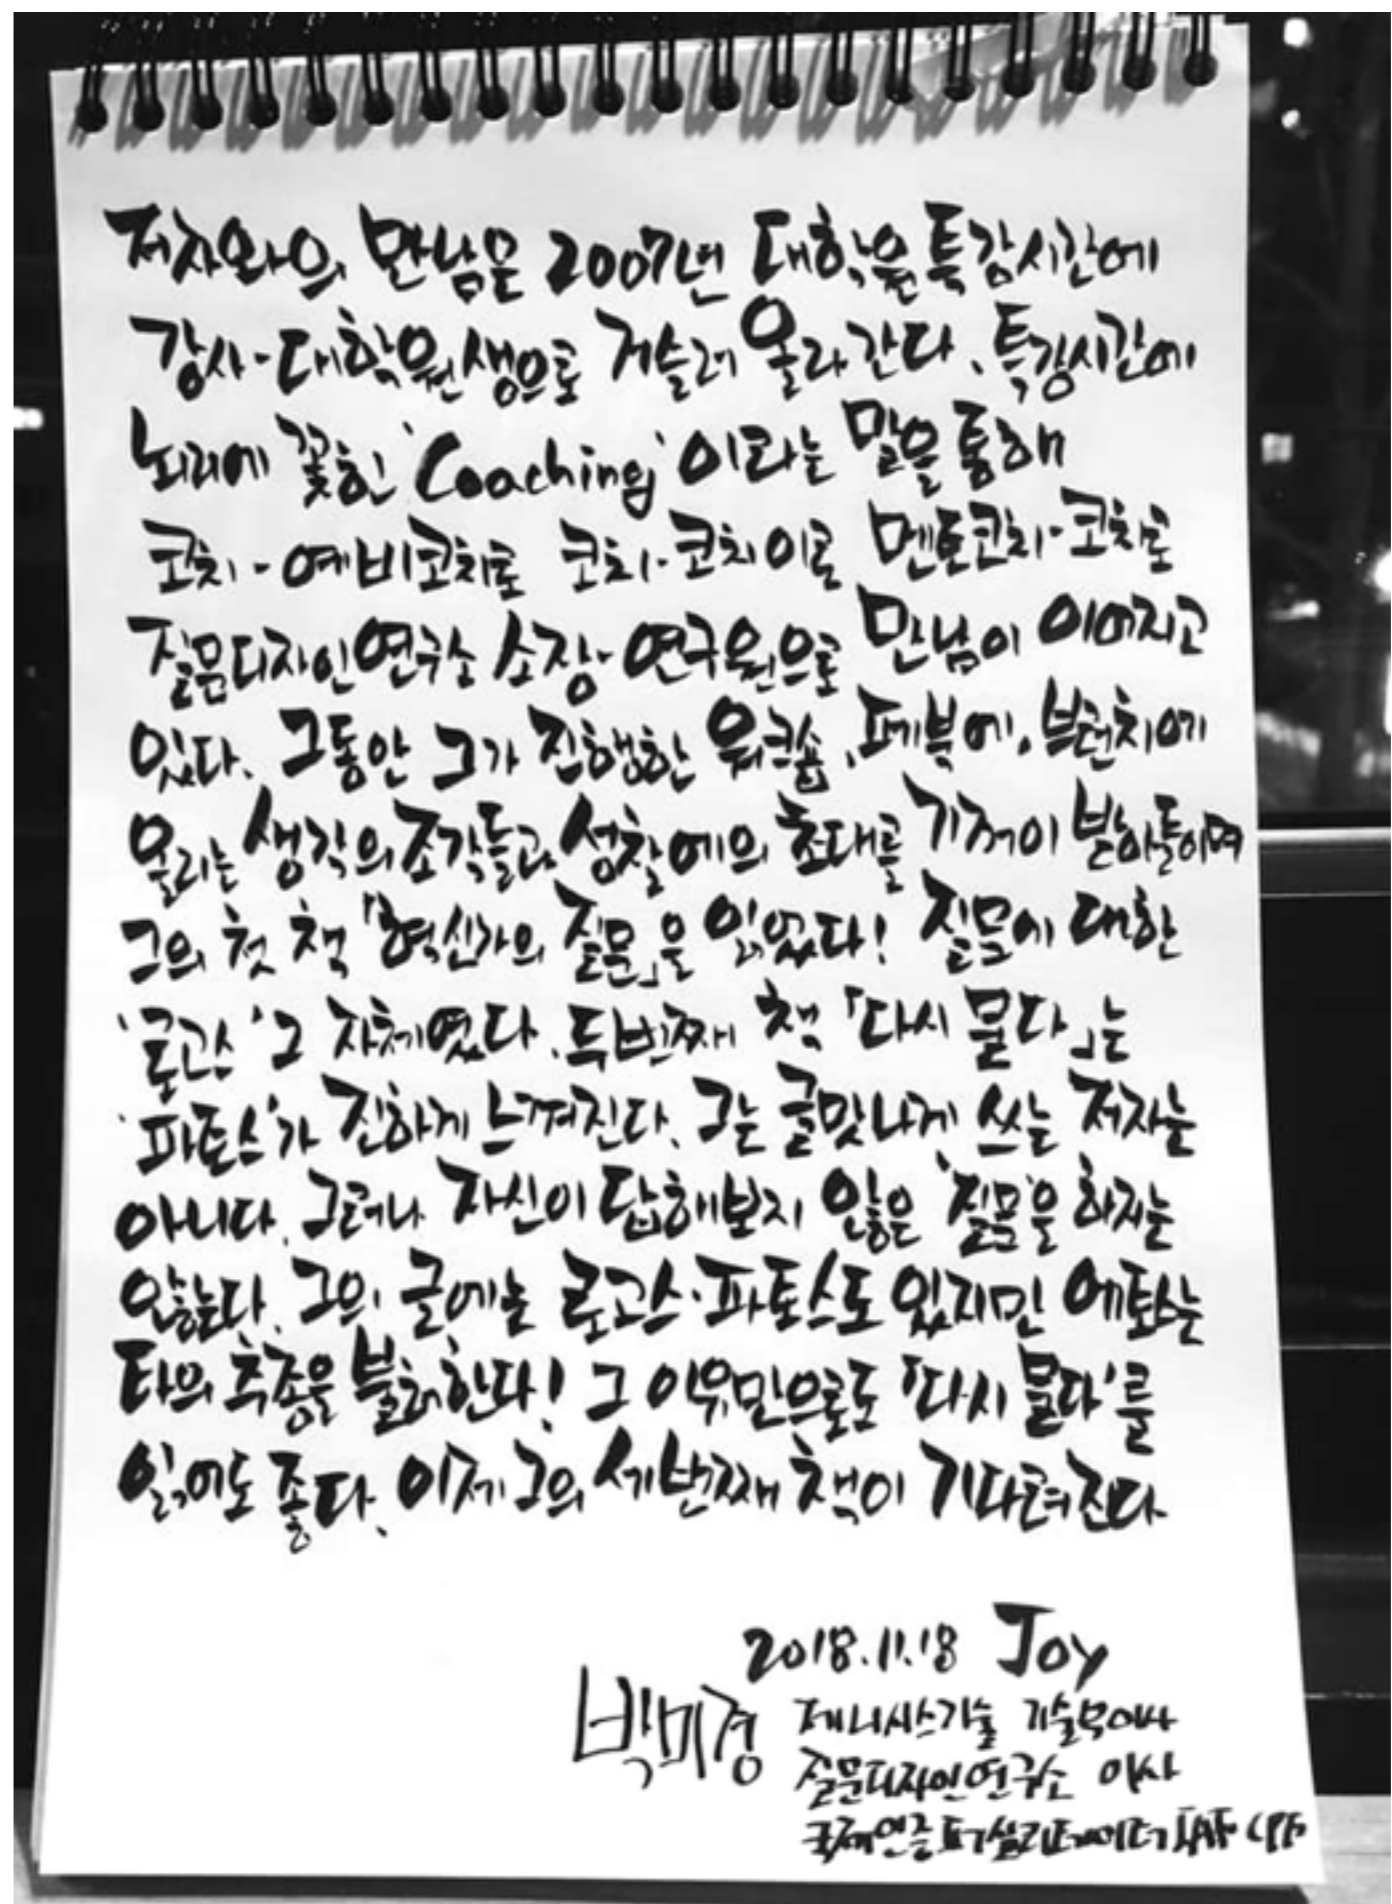 저자와의 만남은 2007년 대학원 특강시간에
강사-대학원생으로 거슬러 올라간다. 특강시간에
뇌리에 꽂힌 'Coaching' 이라는 말을 통해
코치-예비코치로 코치-코치이로 멘토코치-코치로
질문디자인연구소 소장-연구원으로 만남이 이어지고
있다. 그동안 그가 진행한 워크숍, 페북에, 브런치에
올리는 생각의 조각들과 성찰에의 초대를 기꺼이 받아들이며
그의 첫 책 「혁신가의 질문」을 읽었다! 질문에 대한
'로고스' 그 자체였다. 두번째 책 「다시 묻다」는
'파토스'가 진하게 느껴진다. 그는 글맛나게 쓰는 저자는
아니다. 그러나 자신이 답해보지 않은 '질문'을 하지는
않는다. 그의 글에는 로고스·파토스도 있지만 에토스는
타의 추종을 불허한다! 그 이유만으로도 '다시 묻다'를
읽어도 좋다. 이제 그의 세번째 책이 기다려진다.
2018.11.18 Joy
박미경 제니시스기술 기술부이사
질문디자인연구소 이사
국제인증퍼실리테이터 IAF CPF